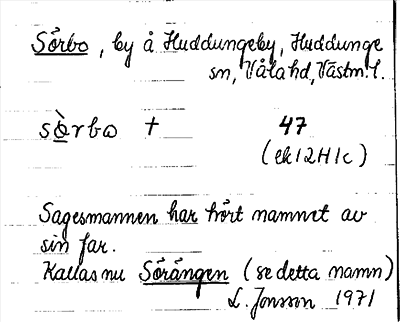 Sörbo, by å Huddungeby, Huddunge
sn, Våla hd, Västm. l.
sö̀rbo † 47
(ek 12H1c)
Sagesmannen har hört namnet av
sin far.
Kallas nu Sörängen (se detta namn)
L. Jonson 1971